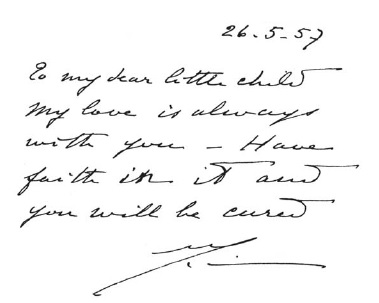 26.5-57
To my dear little child
my love is always
with you – Have
faith in it and
you will be cured